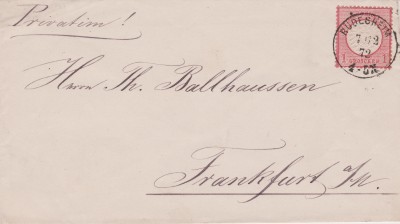 Privatim!
RÜDESHEIM
72
4-5N
1 1
Herrn Th. Ballhaussen
Frankfurt a/M.